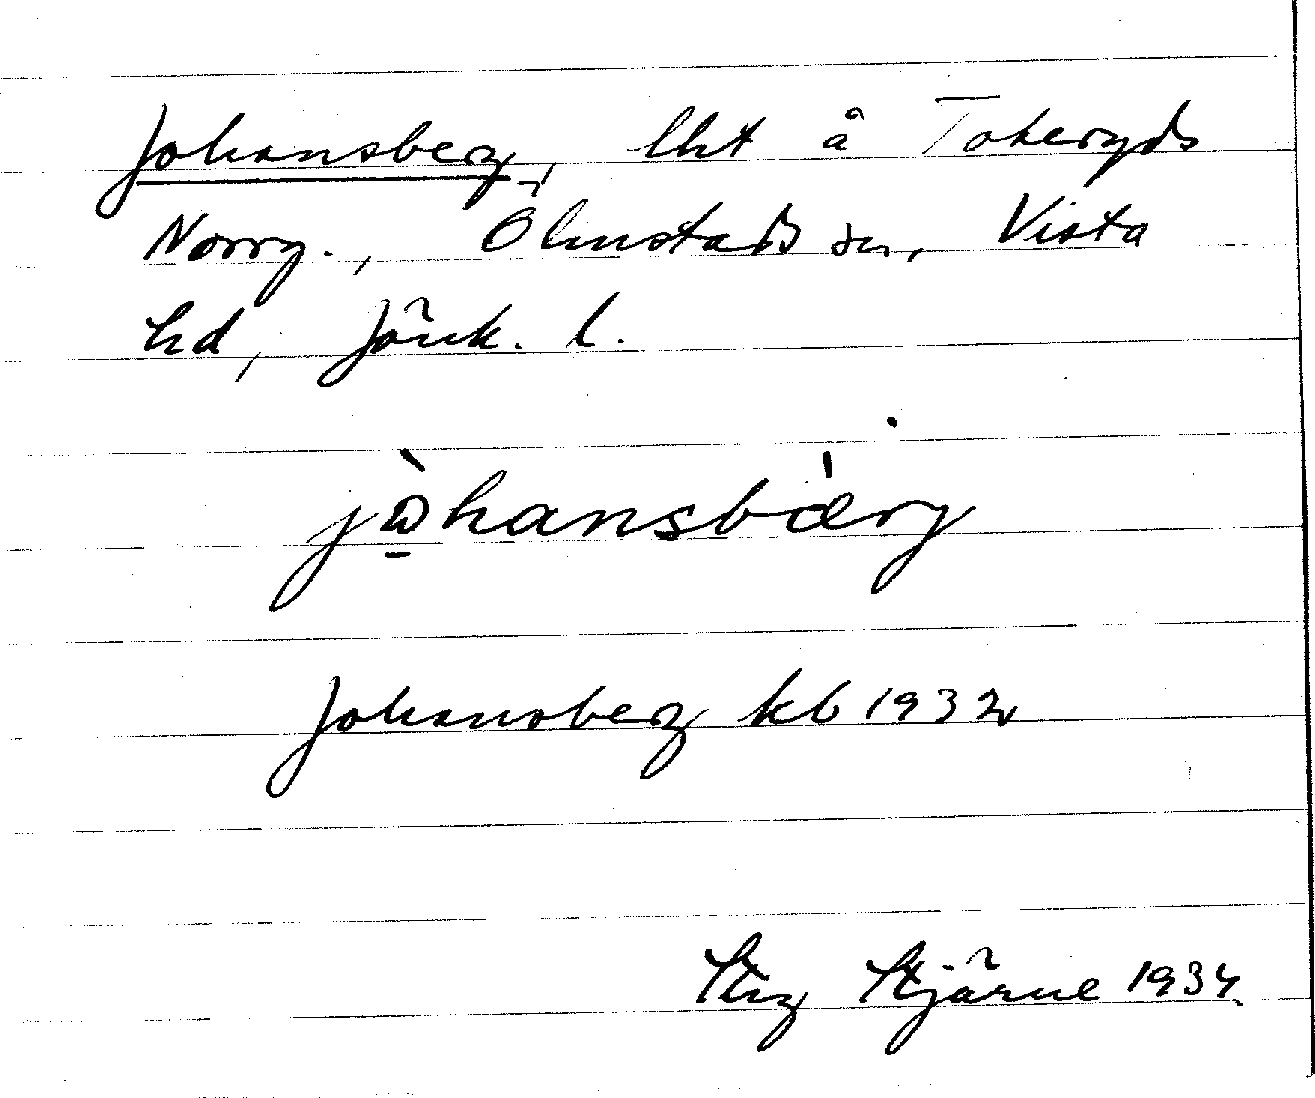 Johansberg, lht å Tokeryds
Norrg., Ölmstads sn, Vista
hd, Jönk. l.
jὼ̠hansbæ̀rj
Johansberg kb 1932
Stig Stjärne 1934.